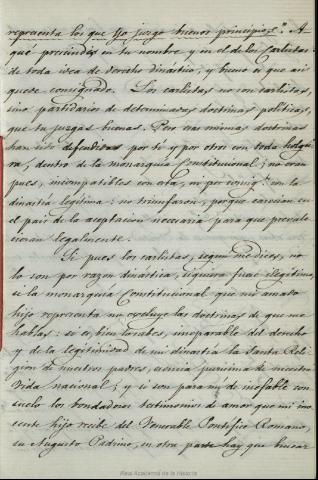 representa los que yo juzgo buenos principios". A-
qué prescindes en tu nombre y en el de los carlistas
de toda idea de derecho dinástico, y bueno es que así
quede consignado. Los carlistas no son carlistas,
sino partidarios de determinadas doctrinas políticas,
que tu juzgas buenas. Pero esas mismas doctrinas
han sido defendidas por ti y por otros con toda holgu-
ra, dentro de la monarquía Constitucional; no eran
pues, incompatibles con esta, ni por consigte. con la
dinastía legítima: no triunfaron, porque carecían en
el país de la aceptación necesaria para que prevale-
cieran legalmente.
Si pues los carlistas, segun me dices, no
lo son por razon dinástica, siquiera fuese ilegítima,
si la monarquía Constitucional que mi amado
hijo representa no excluye las doctrinas de que me
hablas: si es, bien lo sabes, inseparable del derecho
y de la legitimidad de mi dinastía la Santa Reli-
gion de nuestros padres, esencia purísima de nuestra
vida nacional; y si son para mí de inefable con-
suelo los bondadosos testimonios de amor que mi ino-
cente hijo recibe del Venerable Pontífice Romano,
su Augusto Padrino, en otra parte hay que buscar
Real Academia de la Historia